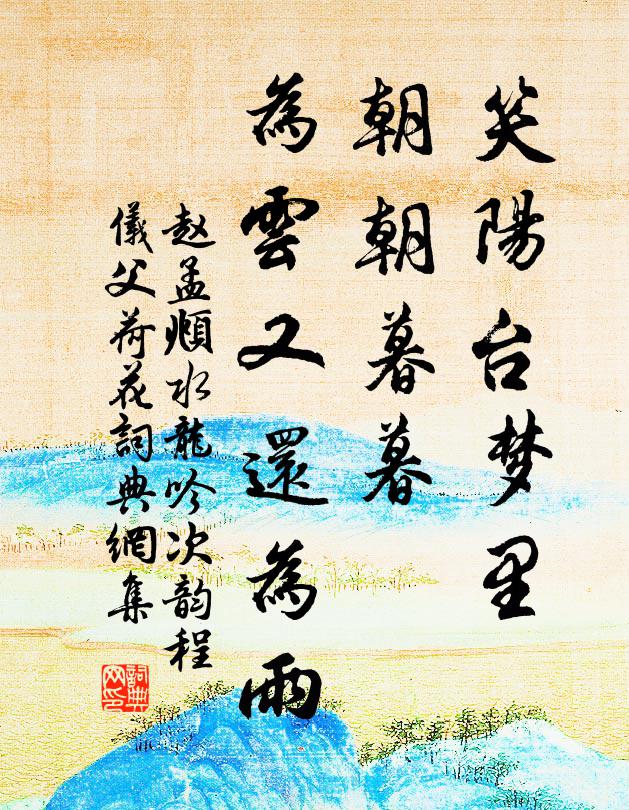 笑陽台梦里
朝朝暮暮
為雲又還為雨
赵孟頫水龍吟次韵程
儀父荷花詞典網集
詞典
网印